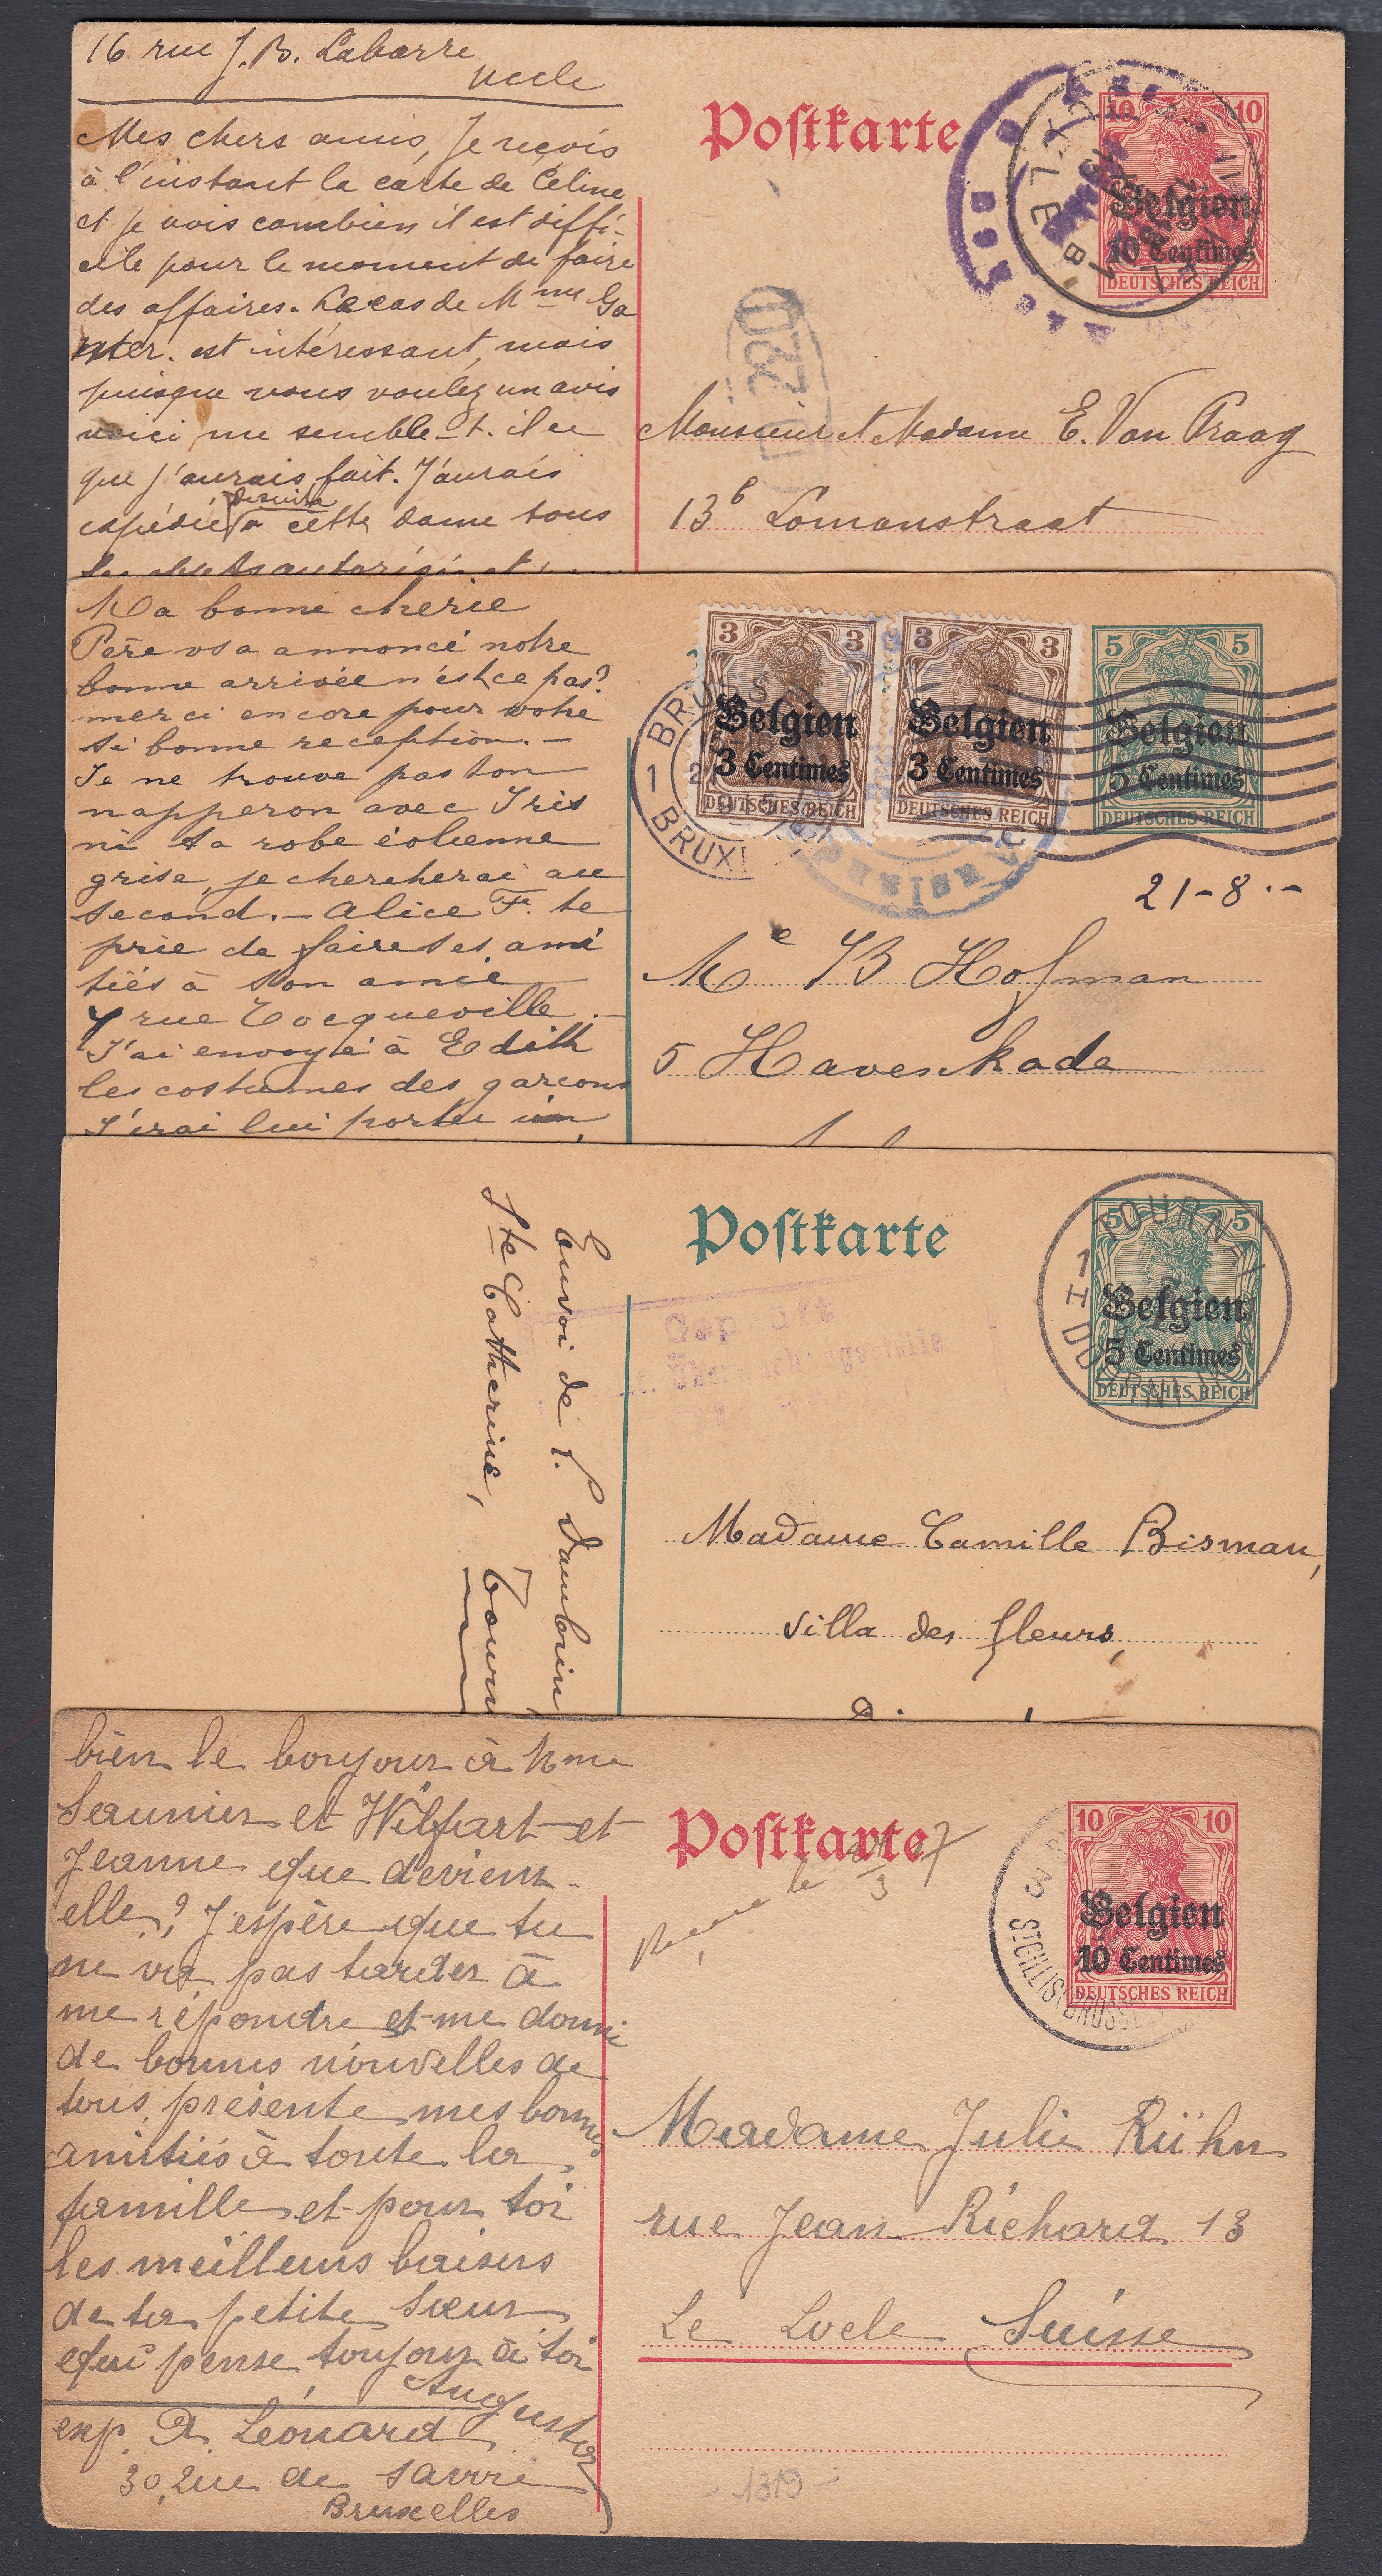 16 rue J. B. Labarre
Uccle
Mes chers amis, Je reçois
à l'instant la carte de Céline
et je vois combien il est diffi-
cile pour le moment de faire
des affaires. Le cas de Mme Ga
nter. est intéressant, mais
puisque vous voulez un avis
voici me semble-t-il ce
que j'aurais fait. J'aurais
expédié desuite à cette dame tous
Postkarte
10 10
Belgien
10 Centimes
DEUTSCHES REICH
UCCLE
220
Monsieur et Madame E. Van Praag
13b Lomanstraat
Ma bonne cherie
Père vs a annoncé notre
bonne arrivée n'est ce pas?
merci encore pour votre
si bonne reception. —
Je ne trouve pas ton
napperon avec Iris
ni ta robe éolienne
grise, je chercherai au
second. — Alice F. te
prie de faire ses ami
tiés à son amie
7 rue Tocqueville. —
J'ai envoyé à Edith
les costumes des garcons
J'irai lui porter
3 3
Belgien
3 Centimes
DEUTSCHES REICH
3 3
Belgien
3 Centimes
DEUTSCHES REICH
5 5
Belgien
5 Centimes
DEUTSCHES REICH
1 BRUSS
1 BRUX
21-8.-
Me B Hofman
5 Havenkade
Envoi de P. Daubrin
Ste Catherine, Tourn
Postkarte
5 5
Belgien
5 Centimes
DEUTSCHES REICH
1 TOURNAI 1
DOORNIJK
Geprüft
Überwachungsstelle
Madame Camille Bisman,
villa des fleurs,
bien le bonjour à Mme
Saunier et Wilfart et
Jeanne que devient-
elle? J'espère que tu
ne va pas tarder à
me répondre et me donne
de bonnes nouvelles de
tous, présente mes bonnes
amitiés à toute la
famille et pour toi
les meilleurs baisers
de ta petite sœur
qui pense toujour à toi
Augusta
exp. A. Léonard
30, Rue de Savoie
Bruxelles
Postkarte
10 10
Belgien
10 Centimes
DEUTSCHES REICH
3 ST GILLIS (BRUSS
Madame Julie Rühn
rue Jean Richard 13
Le Locle Suisse
1319